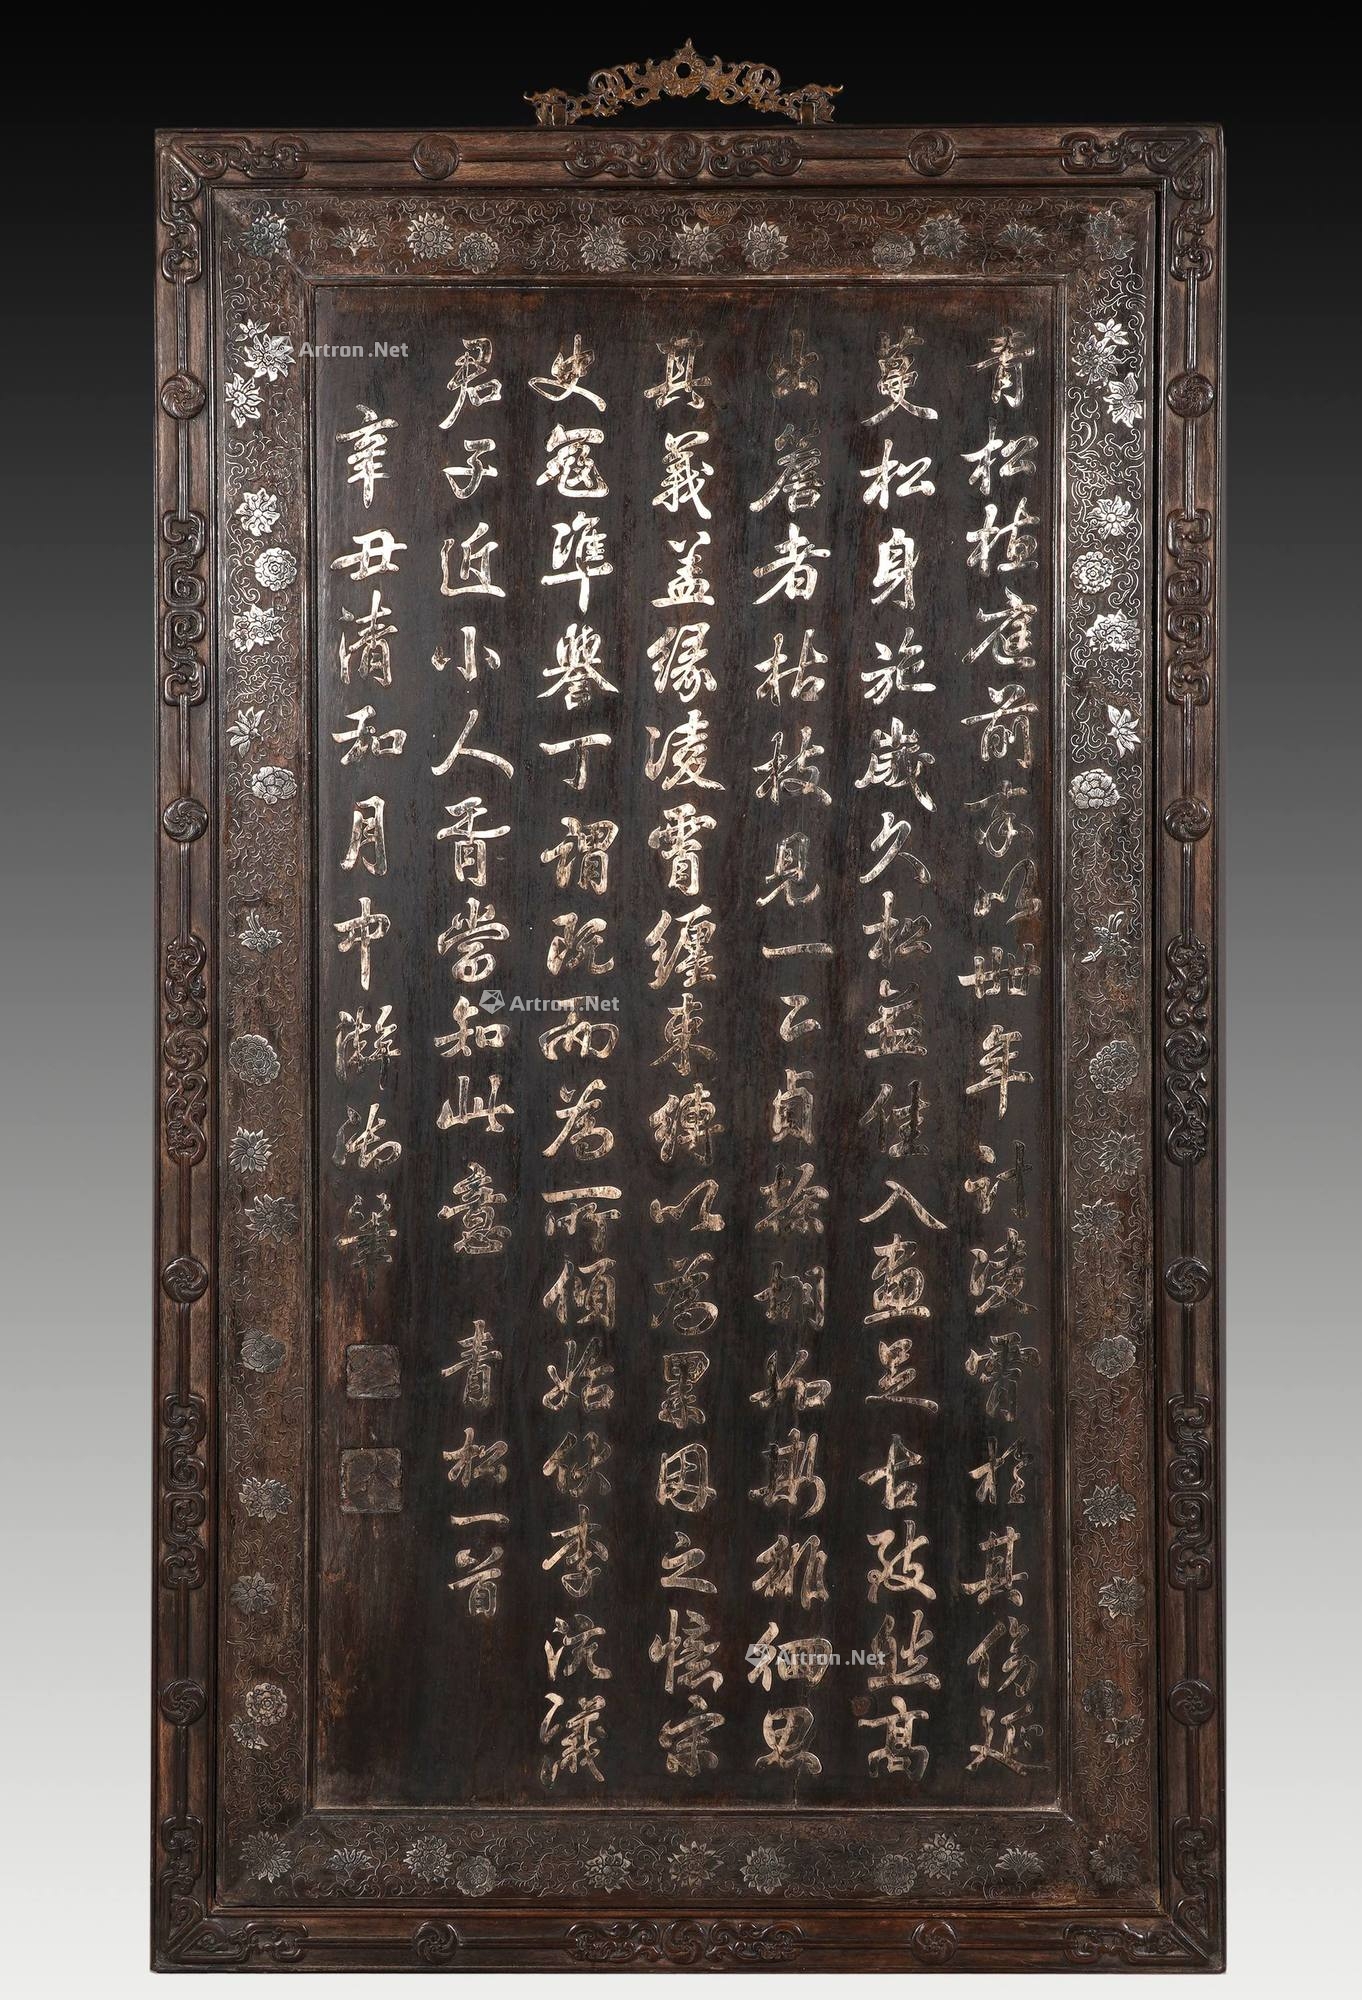 青松植庭前奉以卌年計淩霄於其傍延
蔓松身施歲久松益佳入畫足古致然高
出簷者枯枝見一二貞操拗拗斯徘徊思
其義盖緣淩霄纏束縛以為累因之憶宋
史寇準譽丁謂既而為所傾始伏李沆議
君子近小人胥當知此意 青松一首
辛丑清和月中澣御筆
Artron.Net
Artron.Net
Artron.Net